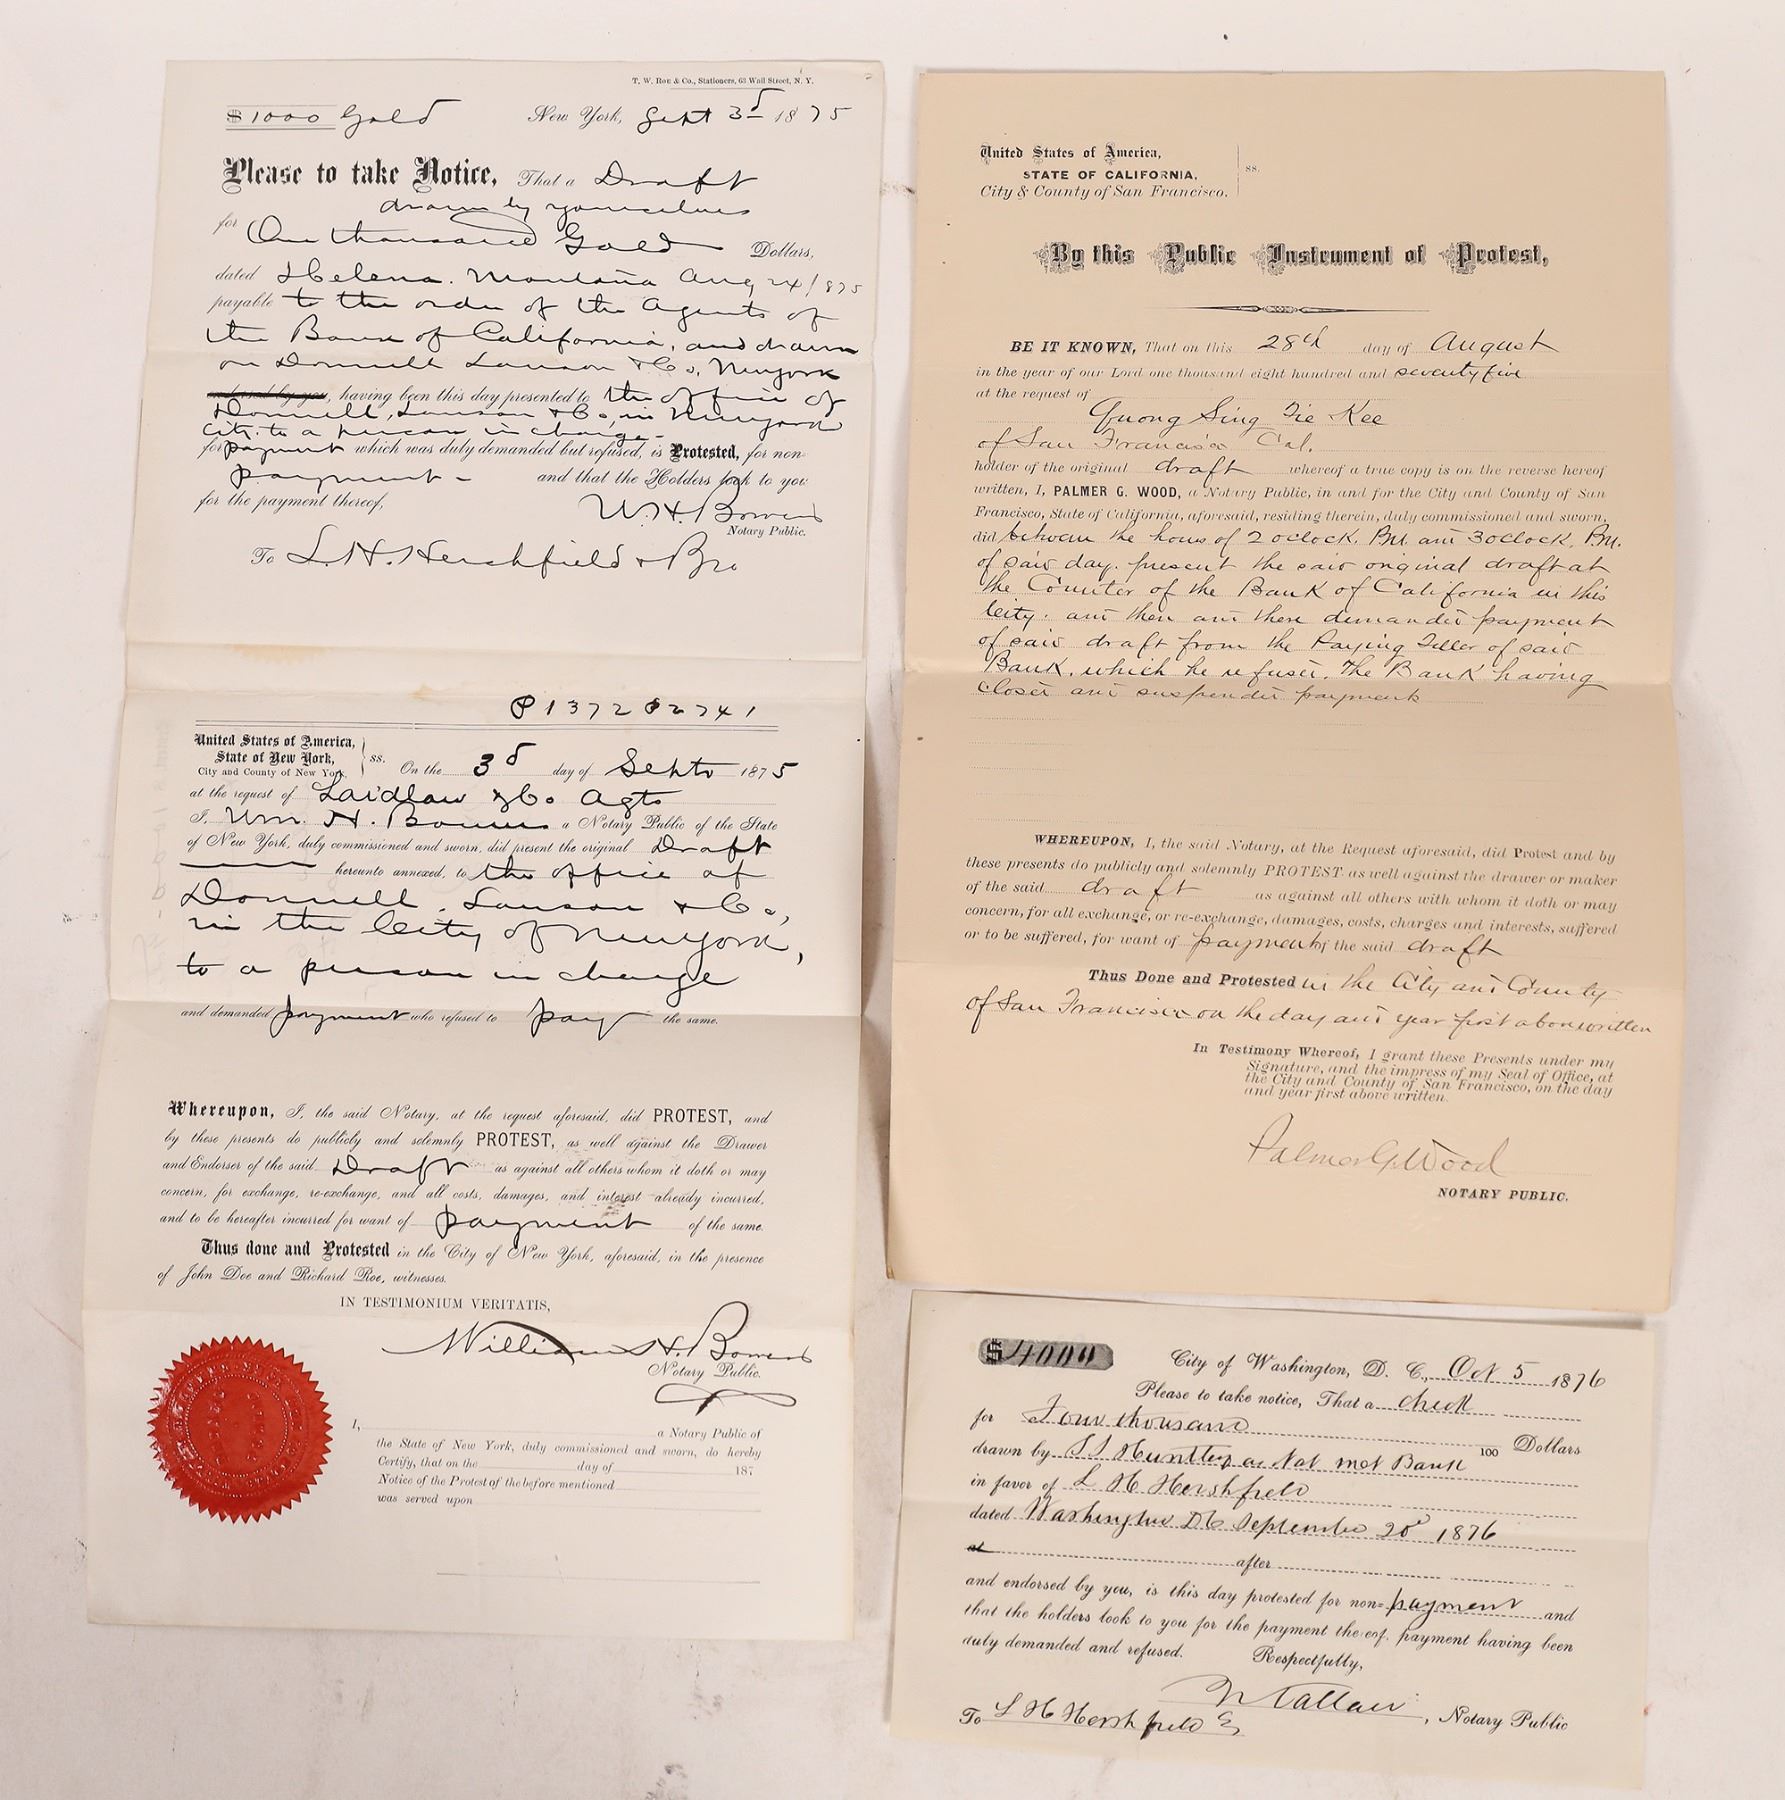 T. W. Roe & Co., Stationers, 63 Wall Street, N. Y.
$1000 Gold New York, Sept 3d 1875
Please to take Notice, That a Draft
drawn by yourselves
for One thousand Gold Dollars,
dated Helena. Montana Aug 24/875
payable to the order of the Agents of
the Bank of California, and drawn
on Donnell Lawson & Co, Newyork
endorsed by you, having been this day presented to the office of
Donnell, Lawson & Co, in Newyork
City. to a person in charge -
for payment which was duly demanded but refused, is Protested, for non-
payment - and that the Holders look to you
for the payment thereof,
W. H. Bowen
Notary Public.
To L. H. Hershfield & Bro
P1372 2741
United States of America,
State of New York,
City and County of New York,
ss. On the 3d day of Septr 1875
at the request of Laidlaw & Co Agts
I, Wm. H. Bowen a Notary Public of the State
of New York, duly commissioned and sworn, did present the original Draft
hereunto annexed, to the office of
Donnell, Lawson & Co,
in the City of Newyork,
to a person in charge
and demanded payment who refused to pay the same.
Whereupon, I, the said Notary, at the request aforesaid, did PROTEST, and
by these presents do publicly and solemnly PROTEST, as well against the Drawer
and Endorser of the said Draft as against all others whom it doth or may
concern, for exchange, re-exchange, and all costs, damages, and interest already incurred,
and to be hereafter incurred for want of payment of the same.
Thus done and Protested in the City of New York, aforesaid, in the presence
of John Doe and Richard Roe, witnesses.
IN TESTIMONIUM VERITATIS,
William H. Bowen
Notary Public.
I, a Notary Public of
the State of New York, duly commissioned and sworn, do hereby
Certify, that on the day of 187
Notice of the Protest of the before mentioned
was served upon
United States of America,
STATE OF CALIFORNIA,
City & County of San Francisco.
ss.
By this Public Instrument of Protest,
BE IT KNOWN, That on this 28th day of August
in the year of our Lord one thousand eight hundred and seventy five
at the request of
Quong Sing Tie Kee
of San Francisco Cal.
holder of the original draft whereof a true copy is on the reverse hereof
written, I, PALMER G. WOOD, a Notary Public, in and for the City and County of San
Francisco, State of California, aforesaid, residing therein, duly commissioned and sworn,
did between the hours of 2 oclock. P.M. and 3 oclock, P.M.
of said day. present the said original draft at
the Counter of the Bank of California in this
City. and then and there demanded payment
of said draft from the Paying Teller of said
Bank, which he refused. The Bank having
closed and suspended payment
WHEREUPON, I, the said Notary, at the Request aforesaid, did Protest and by
these presents do publicly and solemnly PROTEST as well against the drawer or maker
of the said draft as against all others with whom it doth or may
concern, for all exchange, or re-exchange, damages, costs, charges and interests, suffered
or to be suffered, for want of payment of the said draft
Thus Done and Protested in the City and County
of San Francisco on the day and year first above written
In Testimony Whereof, I grant these Presents under my
Signature, and the impress of my Seal of Office, at
the City and County of San Francisco, on the day
and year first above written.
Palmer G. Wood
NOTARY PUBLIC.
$4000
City of Washington, D. C., Oct 5 1876
Please to take notice, That a check
for Four thousand 100 Dollars
drawn by S S Huntley on Nat Met Bank
in favor of L H Hershfield
dated Washington DC September 20d 1876
at after
and endorsed by you, is this day protested for non-payment and
that the holders look to you for the payment thereof, payment having been
duly demanded and refused.
Respectfully,
N Callan
To L H Hershfield , Notary Public